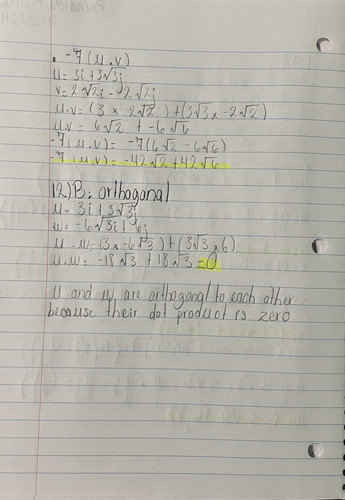 . -7(u.v)
u= 3i+3√3j
v= 2√2i-2√2j
u.v= (3 x 2√2) + (3√3 x -2√2)
u.v= 6√2 + -6√6
-7(u.v)= -7(6√2 - 6√6)
-7(u.v)= -42√2+42√6
12.)B: orthogonal
u= 3i + 3√3j
w= -6√3i + 6j
u.w= (3 x -6√3) + (3√3 x 6)
u.w= -18√3 + 18√3 = 0
u and w are orthogonal to each other
because their dot product is zero